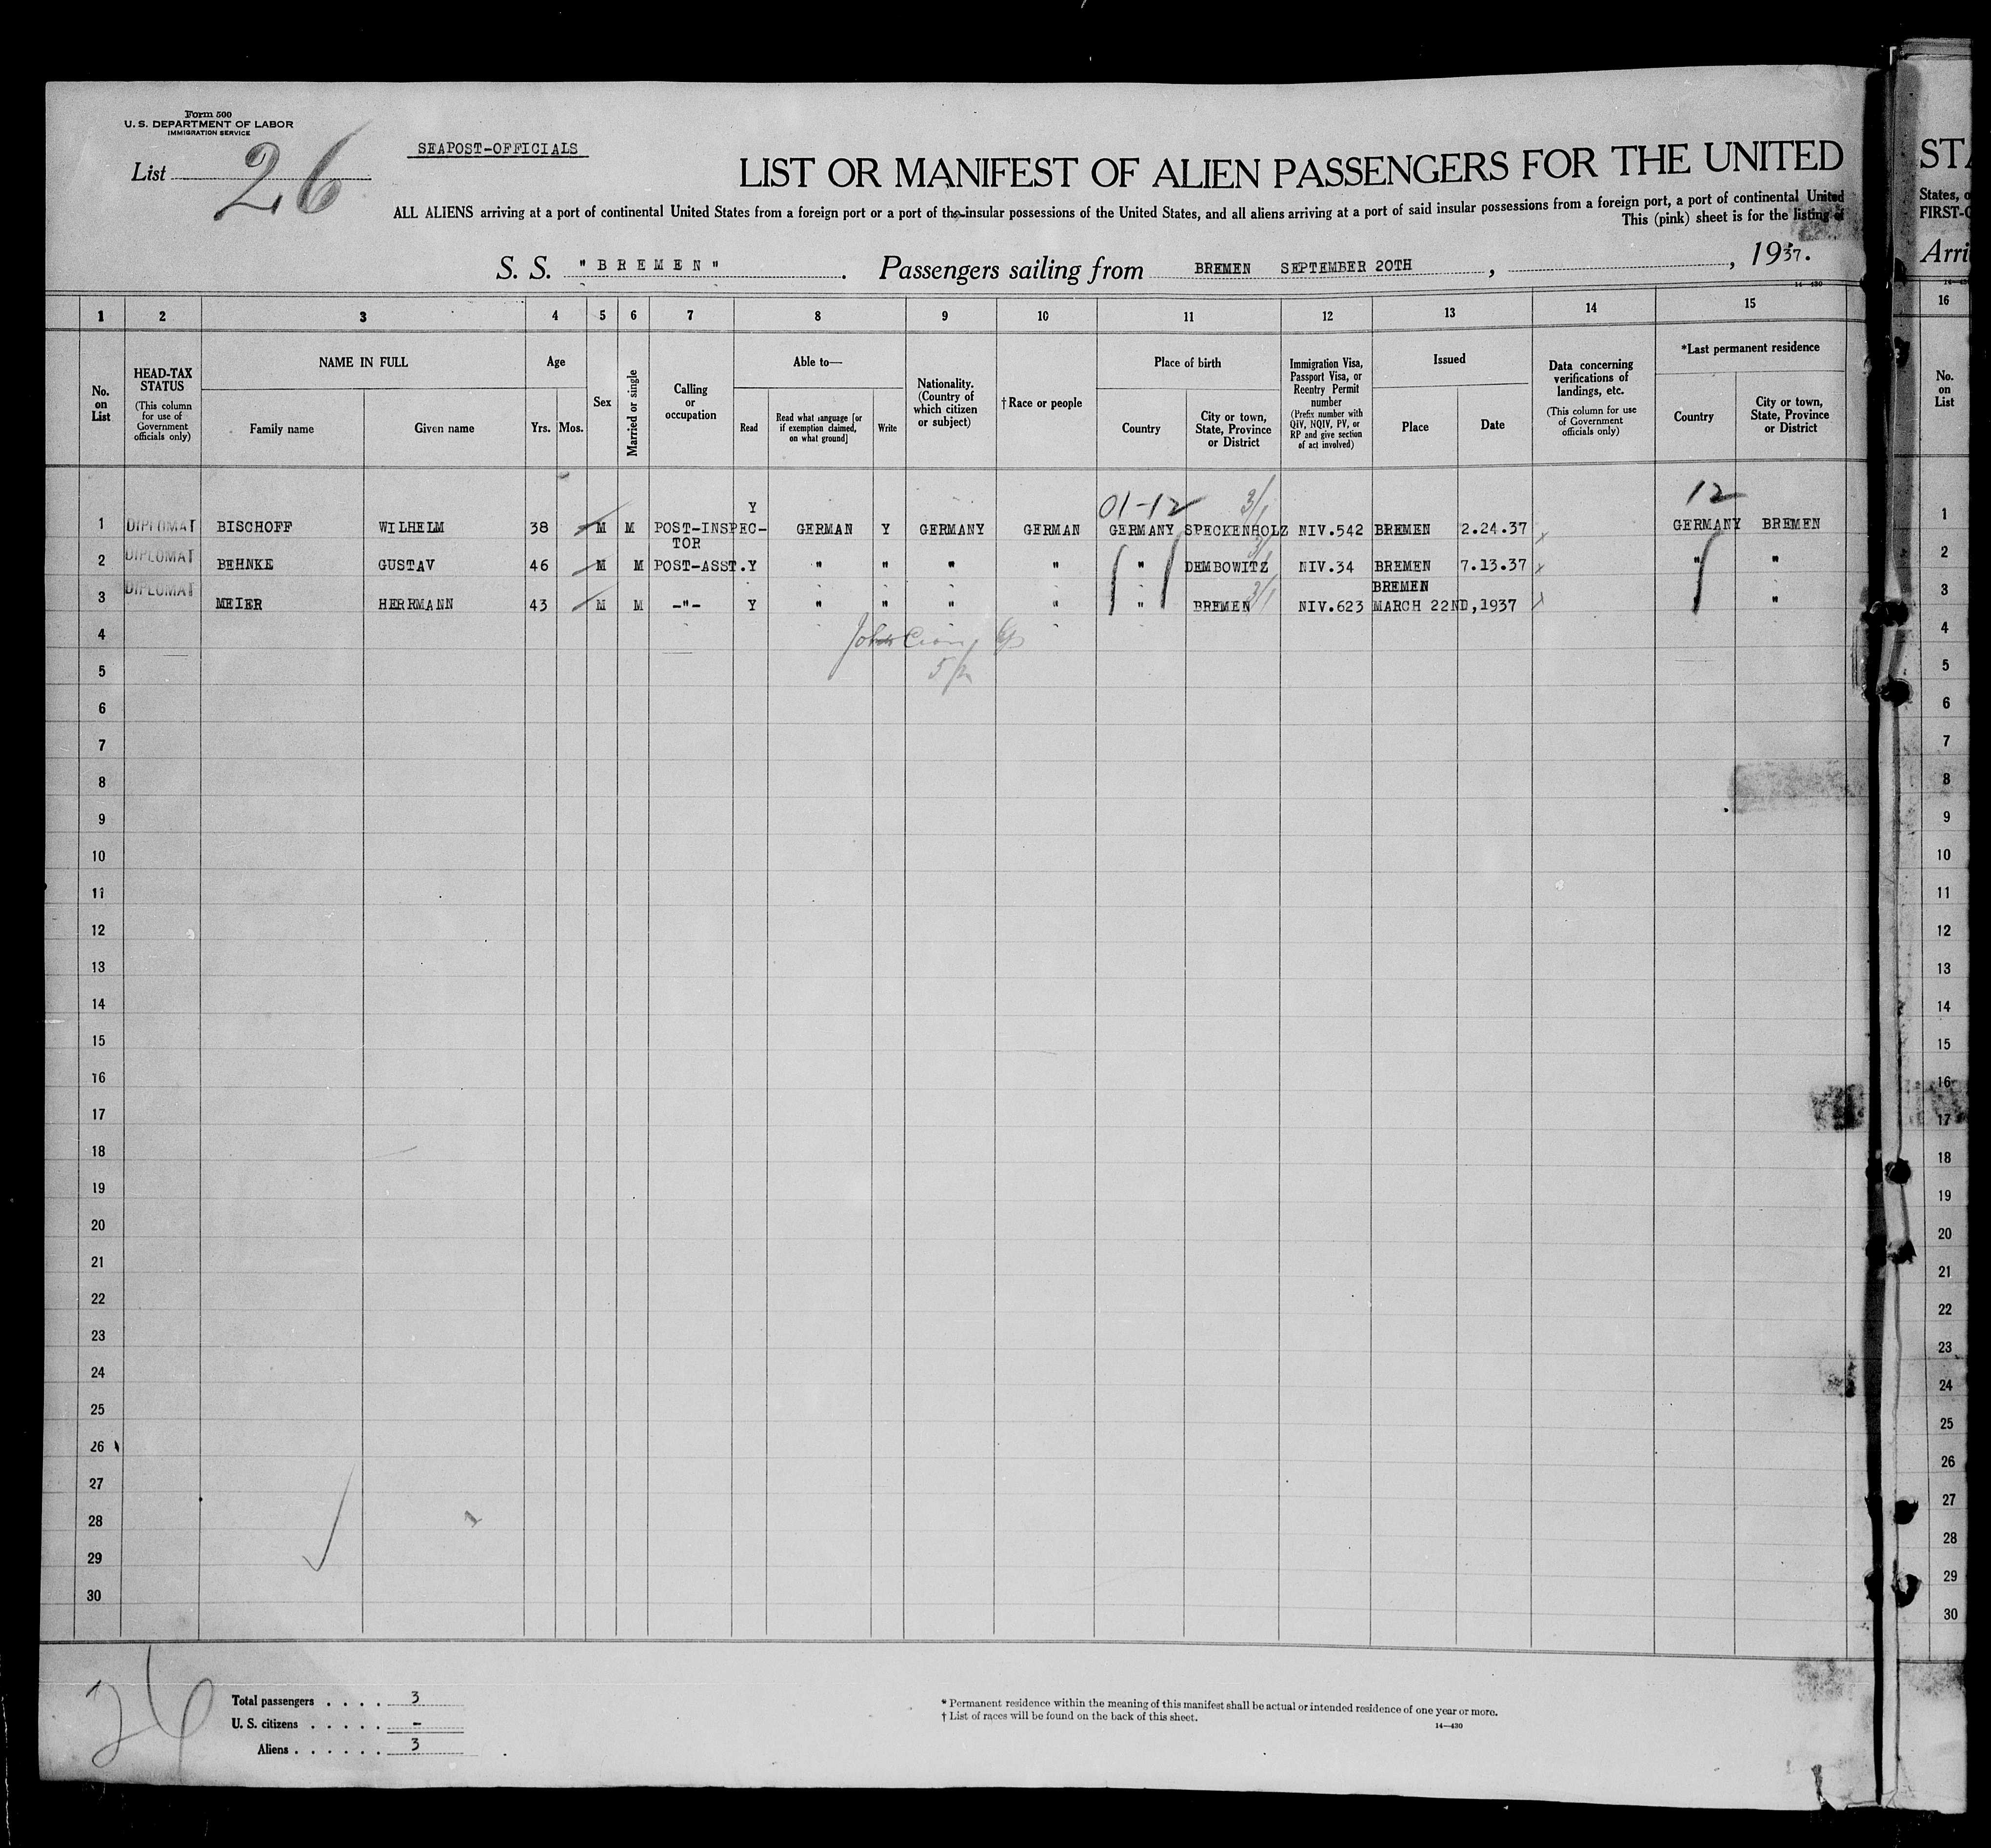 Form 500
U. S. DEPARTMENT OF LABOR
IMMIGRATION SERVICE
List 26
SEAPOST-OFFICIALS
LIST OR MANIFEST OF ALIEN PASSENGERS FOR THE UNITED
STA
ALL ALIENS arriving at a port of continental United States from a foreign port or a port of the insular possessions of the United States, and all aliens arriving at a port of said insular possessions from a foreign port, a port of continental United
States, o
This (pink) sheet is for the listing of
FIRST-C
S. S. "BREMEN". Passengers sailing from BREMEN SEPTEMBER 20TH, , 1937.
Arri
14—430
1 2 3 4 5 6 7 8 9 10 11 12 13 14 15 16
No. on List
HEAD-TAX STATUS
(This column for use of Government officials only)
NAME IN FULL
Family name
Given name
Age
Yrs. Mos.
Sex
Married or single
Calling or occupation
Able to—
Read
Read what language [or if exemption claimed, on what ground]
Write
Nationality. (Country of which citizen or subject)
† Race or people
Place of birth
Country
City or town, State, Province or District
Immigration Visa, Passport Visa, or Reentry Permit number
(Prefix number with QIV, NQIV, PV, or RP and give section of act involved)
Issued
Place
Date
Data concerning verifications of landings, etc.
(This column for use of Government officials only)
*Last permanent residence
Country
City or town, State, Province or District
No. on List
01-12 3/1 12
1 DIPLOMAT BISCHOFF WILHELM 38 M M POST-INSPEC-TOR Y GERMAN Y GERMANY GERMAN GERMANY SPECKENHOLZ NIV.542 BREMEN 2.24.37 x GERMANY BREMEN 1
2 DIPLOMAT BEHNKE GUSTAV 46 M M POST-ASST. Y " " " " " DEMBOWITZ 3/1 NIV.34 BREMEN 7.13.37 x " " 2
3 DIPLOMAT MEIER HERRMANN 43 M M -"- Y " " " " " BREMEN 3/1 NIV.623 BREMEN MARCH 22ND,1937 x " " 3
4 4
5 5
6 6
7 7
8 8
9 9
10 10
11 11
12 12
13 13
14 14
15 15
16 16
17 17
18 18
19 19
20 20
21 21
22 22
23 23
24 24
25 25
26 26
27 27
28 28
29 29
30 30
26
Total passengers . . . . 3
U. S. citizens . . . . . -
Aliens . . . . . . 3
* Permanent residence within the meaning of this manifest shall be actual or intended residence of one year or more.
† List of races will be found on the back of this sheet.
14—430